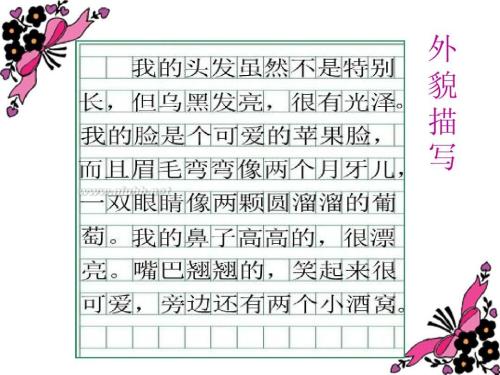 外貌描写
我的头发虽然不是特别
长，但乌黑发亮，很有光泽。
我的脸是个可爱的苹果脸，
而且眉毛弯弯像两个月牙儿，
一双眼睛像两颗圆溜溜的葡
萄。我的鼻子高高的，很漂
亮。嘴巴翘翘的，笑起来很
可爱，旁边还有两个小酒窝。